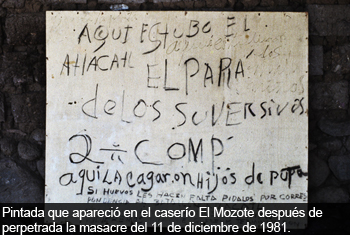 AQUI ESTUBO EL
ATLACATL
EL PAPA'
de LOS SUVERSIVOS
2 COMP
aqui LA cagaron Hijos de puta
SI HUEVOS LES HACEN FALTA PIDALOS POR CORREO
Pintada que apareció en el caserío El Mozote después de
perpetrada la masacre del 11 de diciembre de 1981.